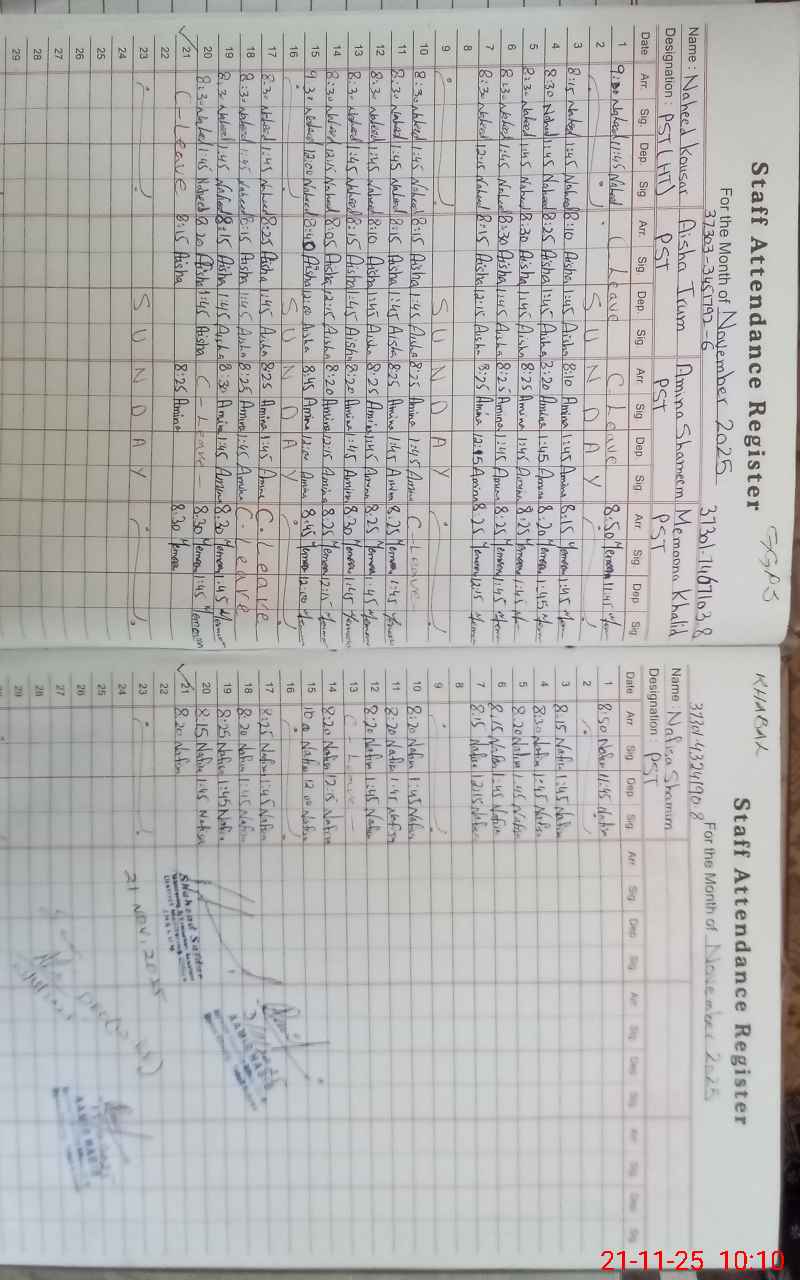 GGPS
Staff Attendance Register
For the Month of November 2025
37303-3451792-6 37301-7467103 8
Name : Naheed Kousar Aisha Irum Amina Shameem Memoona Khalid
Designation : PST (HT) PST PST PST
Date Arr. Sig. Dep. Sig Arr. Sig. Dep. Sig Arr. Sig. Dep. Sig Arr. Sig. Dep Sig
1 9:00 Naheed 11:45 Naheed C Leave C. Leave 8:50 Memoona 11:45
2 S U N D A Y
3 8:15 Naheed 1:45 Naheed 8:10 Aisha 1:45 Aisha 8:10 Amina 1:45 Amina 8:15 Memoona 1:45
4 8:30 Naheed 1:45 Naheed 8:25 Aisha 1:45 Aisha 8:20 Amina 1:45 Amina 8:20 Memoona 1:45
5 8:30 Naheed 1:45 Naheed 8:30 Aisha 1:45 Aisha 8:25 Amina 1:45 Amina 8:25 Memoona 1:45
6 8:30 Naheed 1:45 Naheed 8:30 Aisha 1:45 Aisha 8:25 Amina 1:45 Amina 8:25 Memoona 1:45
7 8:30 Naheed 12:15 Naheed 8:15 Aisha 12:15 Aisha 8:25 Amina 12:15 Amina 8:25 Memoona 12:15
8
9 S U N D A Y
10 8:30 Naheed 1:45 Naheed 8:15 Aisha 1:45 Aisha 8:25 Amina 1:45 Amina C-Leave
11 8:30 Naheed 1:45 Naheed 8:15 Aisha 1:45 Aisha 8:25 Amina 1:45 Amina 8:25 Memoona 1:45
12 8:30 Naheed 1:45 Naheed 8:10 Aisha 1:45 Aisha 8:25 Amina 1:45 Amina 8:25 Memoona 1:45
13 8:30 Naheed 1:45 Naheed 8:15 Aisha 1:45 Aisha 8:20 Amina 1:45 Amina 8:30 Memoona 1:45
14 8:30 Naheed 12:15 Naheed 8:05 Aisha 12:15 Aisha 8:20 Amina 12:15 Amina 8:25 Memoona 12:15
15 9:30 Naheed 12:00 Naheed 8:40 Aisha 12:00 Aisha 8:45 Amina 12:00 Amina 8:45 Memoona 12:00
16 S U N D A Y
17 8:30 Naheed 1:45 Naheed 8:25 Aisha 1:45 Aisha 8:25 Amina 1:45 Amina C. Leave
18 8:30 Naheed 1:45 Naheed 8:15 Aisha 1:45 Aisha 8:25 Amina 1:45 Amina C. Leave
19 8:30 Naheed 1:45 Naheed 8:15 Aisha 1:45 Aisha 8:30 Amina 1:45 Amina 8:30 Memoona 1:45
20 8:30 Naheed 1:45 Naheed 8:20 Aisha 1:45 Aisha C-Leave 8:30 Memoona 1:45 Memoona
21 C-Leave 8:15 Aisha 8:25 Amina 8:30 Memoona
22
23 S U N D A Y
24
25
26
27
28
29
KHABAL
Staff Attendance Register
For the Month of November 2025
37301-4324190 8
Name : Nafisa Shamim
Designation : PST
Date Arr Sig Dep Sig Arr Sig Dep Sig Arr Sig Dep Sig Arr Sig Dep Sig
1 8:50 Nafisa 11:45 Nafisa
2
3 8:15 Nafisa 1:45 Nafisa
4 8:30 Nafisa 1:45 Nafisa
5 8:20 Nafisa 1:45 Nafisa
6 8:15 Nafisa 1:45 Nafisa
7 8:15 Nafisa 12:15 Nafisa
8
9
10 8:20 Nafisa 1:45 Nafisa
11 8:20 Nafisa 1:45 Nafisa
12 8:20 Nafisa 1:45 Nafisa
13 C-Leave
14 8:20 Nafisa 12:15 Nafisa
15 10:00 Nafisa 12:00 Nafisa
16
17 8:25 Nafisa 1:45 Nafisa
18 8:20 Nafisa 1:45 Nafisa
19 8:25 Nafisa 1:45 Nafisa
20 8:15 Nafisa 1:45 Nafisa
21 8:20 Nafisa
22
23
24
25
26
27
28
21 NOV. 2025
21-11-25 10:10